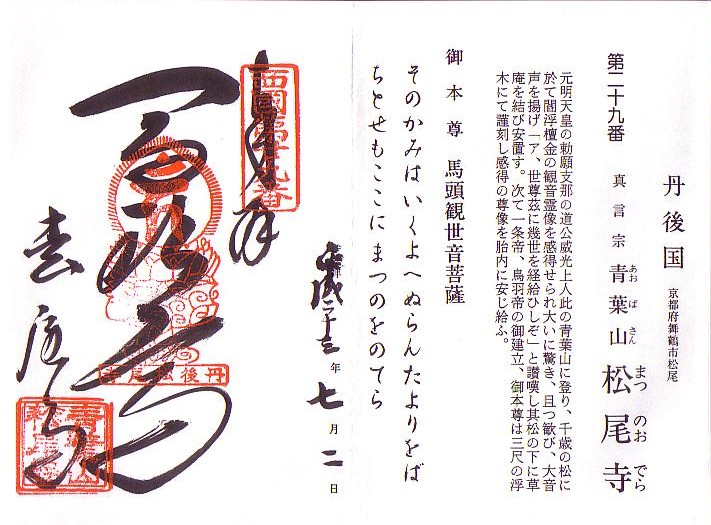 丹後国 京都府舞鶴市松尾
第二十九番 真言宗 青葉山 松尾寺
あおばさん まつのおでら
元明天皇の勅願支那の道公威光上人此の青葉山に登り、千歳の松に
於て閻浮檀金の観音霊像を感得せられ大いに驚き、且つ歓び、大音
声を揚げ「ア、世尊茲に幾世を経給ひしぞ」と讃嘆し其松の下に草
庵を結び安置す。次て一条帝、鳥羽帝の御建立、御本尊は三尺の浮
木にて謹刻し感得の尊像を胎内に安じ給ふ。
御本尊 馬頭観世音菩薩
そのかみはいくよへぬらんたよりをば
ちとせもここにまつのをのてら
平成十三年七月二日
西國第廿九番
丹後松尾寺
松尾寺